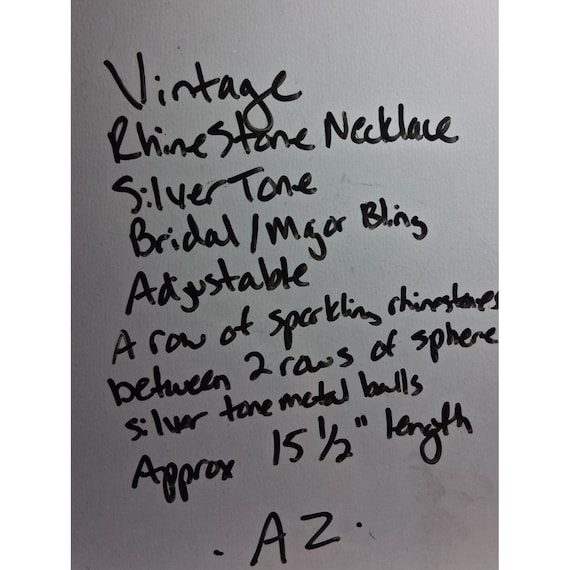 Vintage
RhineStone Necklace
Silver Tone
Bridal / Major Bling
Adjustable
A row of sparkling rhinestones
between 2 rows of sphere
silver tone metal balls
Approx 15 1/2" length
. AZ .